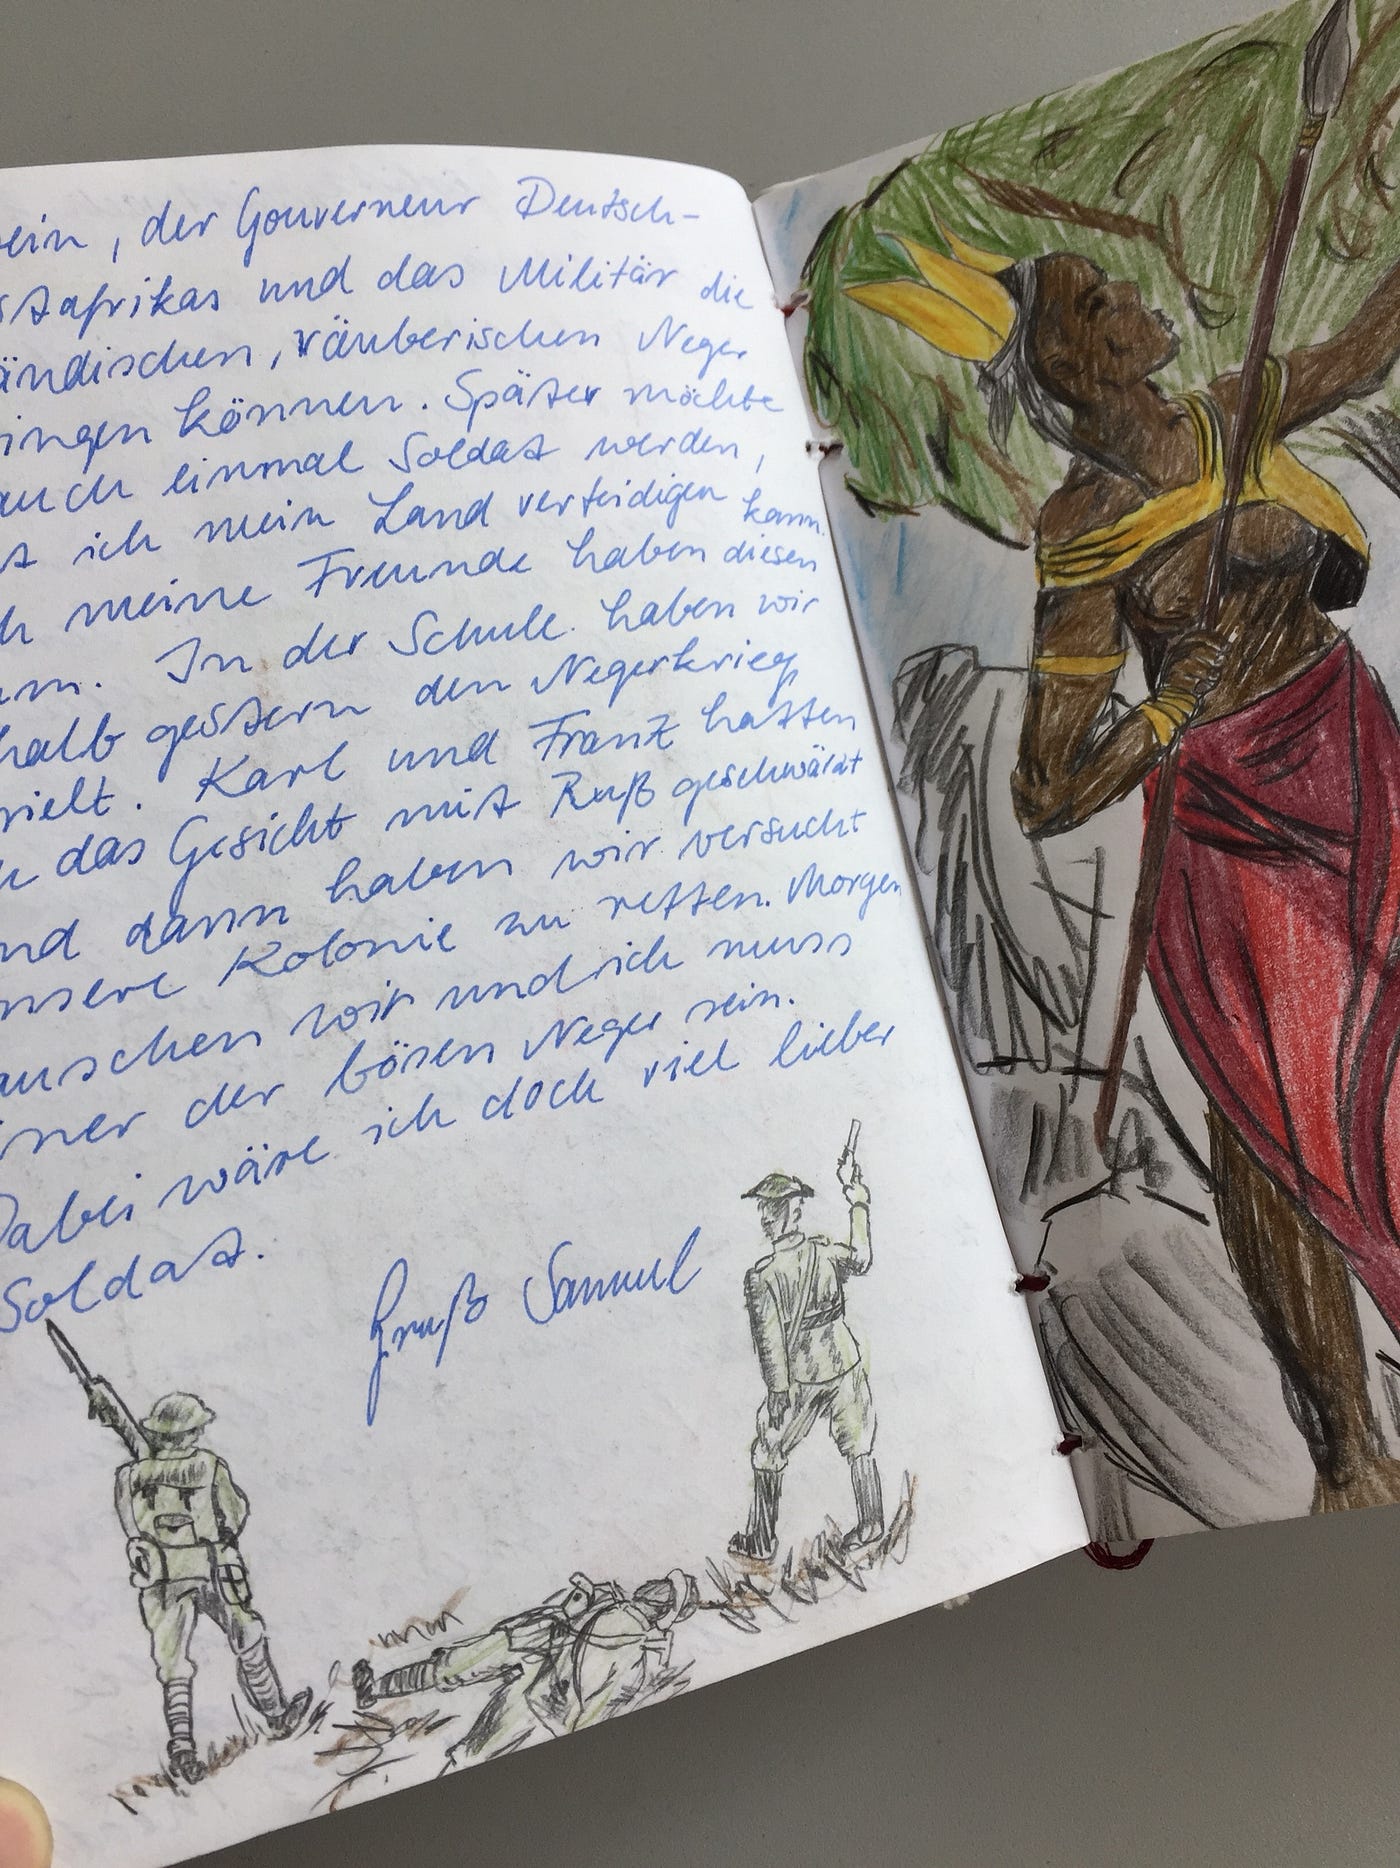 ein, der Gouverneur Deutsch-
stafrikas und das Militär die
ändischen, räuberischen Neger
ingen können. Später möchte
auch einmal Soldat werden,
ich mein Land verteidigen kann.
h meine Freunde haben diesen
In der Schule haben wir
halb gestern den Negerkrieg
ielt. Karl und Franz hatten
das Gesicht mit Ruß geschwärzt
nd dann haben wir versucht
nsere Kolonie zu retten. Morgen
auschen wir und ich muss
iner der bösen Neger sein.
Dabei wäre ich doch viel lieber
Soldat.
Gruß Samuel